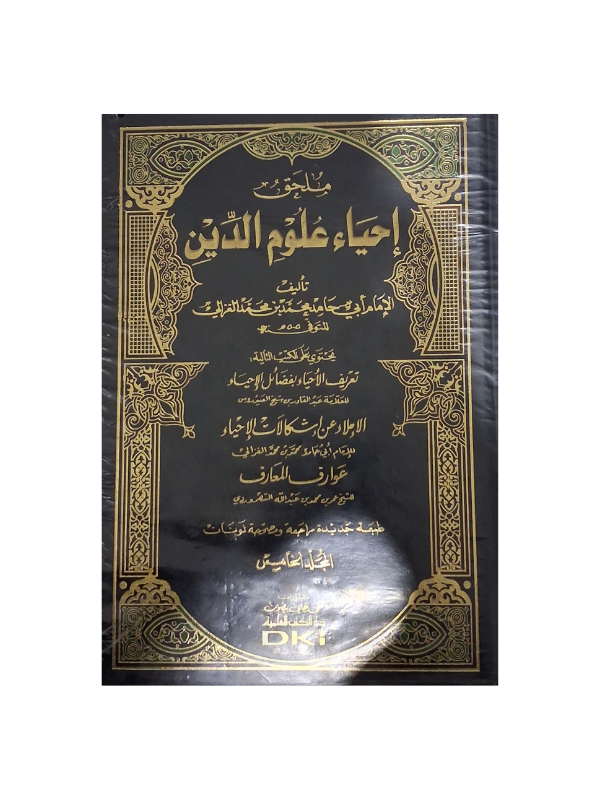 ملحق
إحياء علوم الدين
تأليف
الإمام أبي حامد محمد بن محمد الغزالي
المتوفى ٥٠٥ هـ
يحتوي على الكتب التالية:
تعريف الأحياء بفضائل الإحياء
للعلامة عبد القادر بن شيخ العيدروس
الإملاء عن إشكالات الإحياء
للإمام أبي حامد محمد بن محمد الغزالي
عوارف المعارف
للشيخ عمر بن محمد بن عبد الله السهروردي
طبعة جديدة مراجعة ومصححة
المجلد الخامس
دار الكتب العلمية
DKi